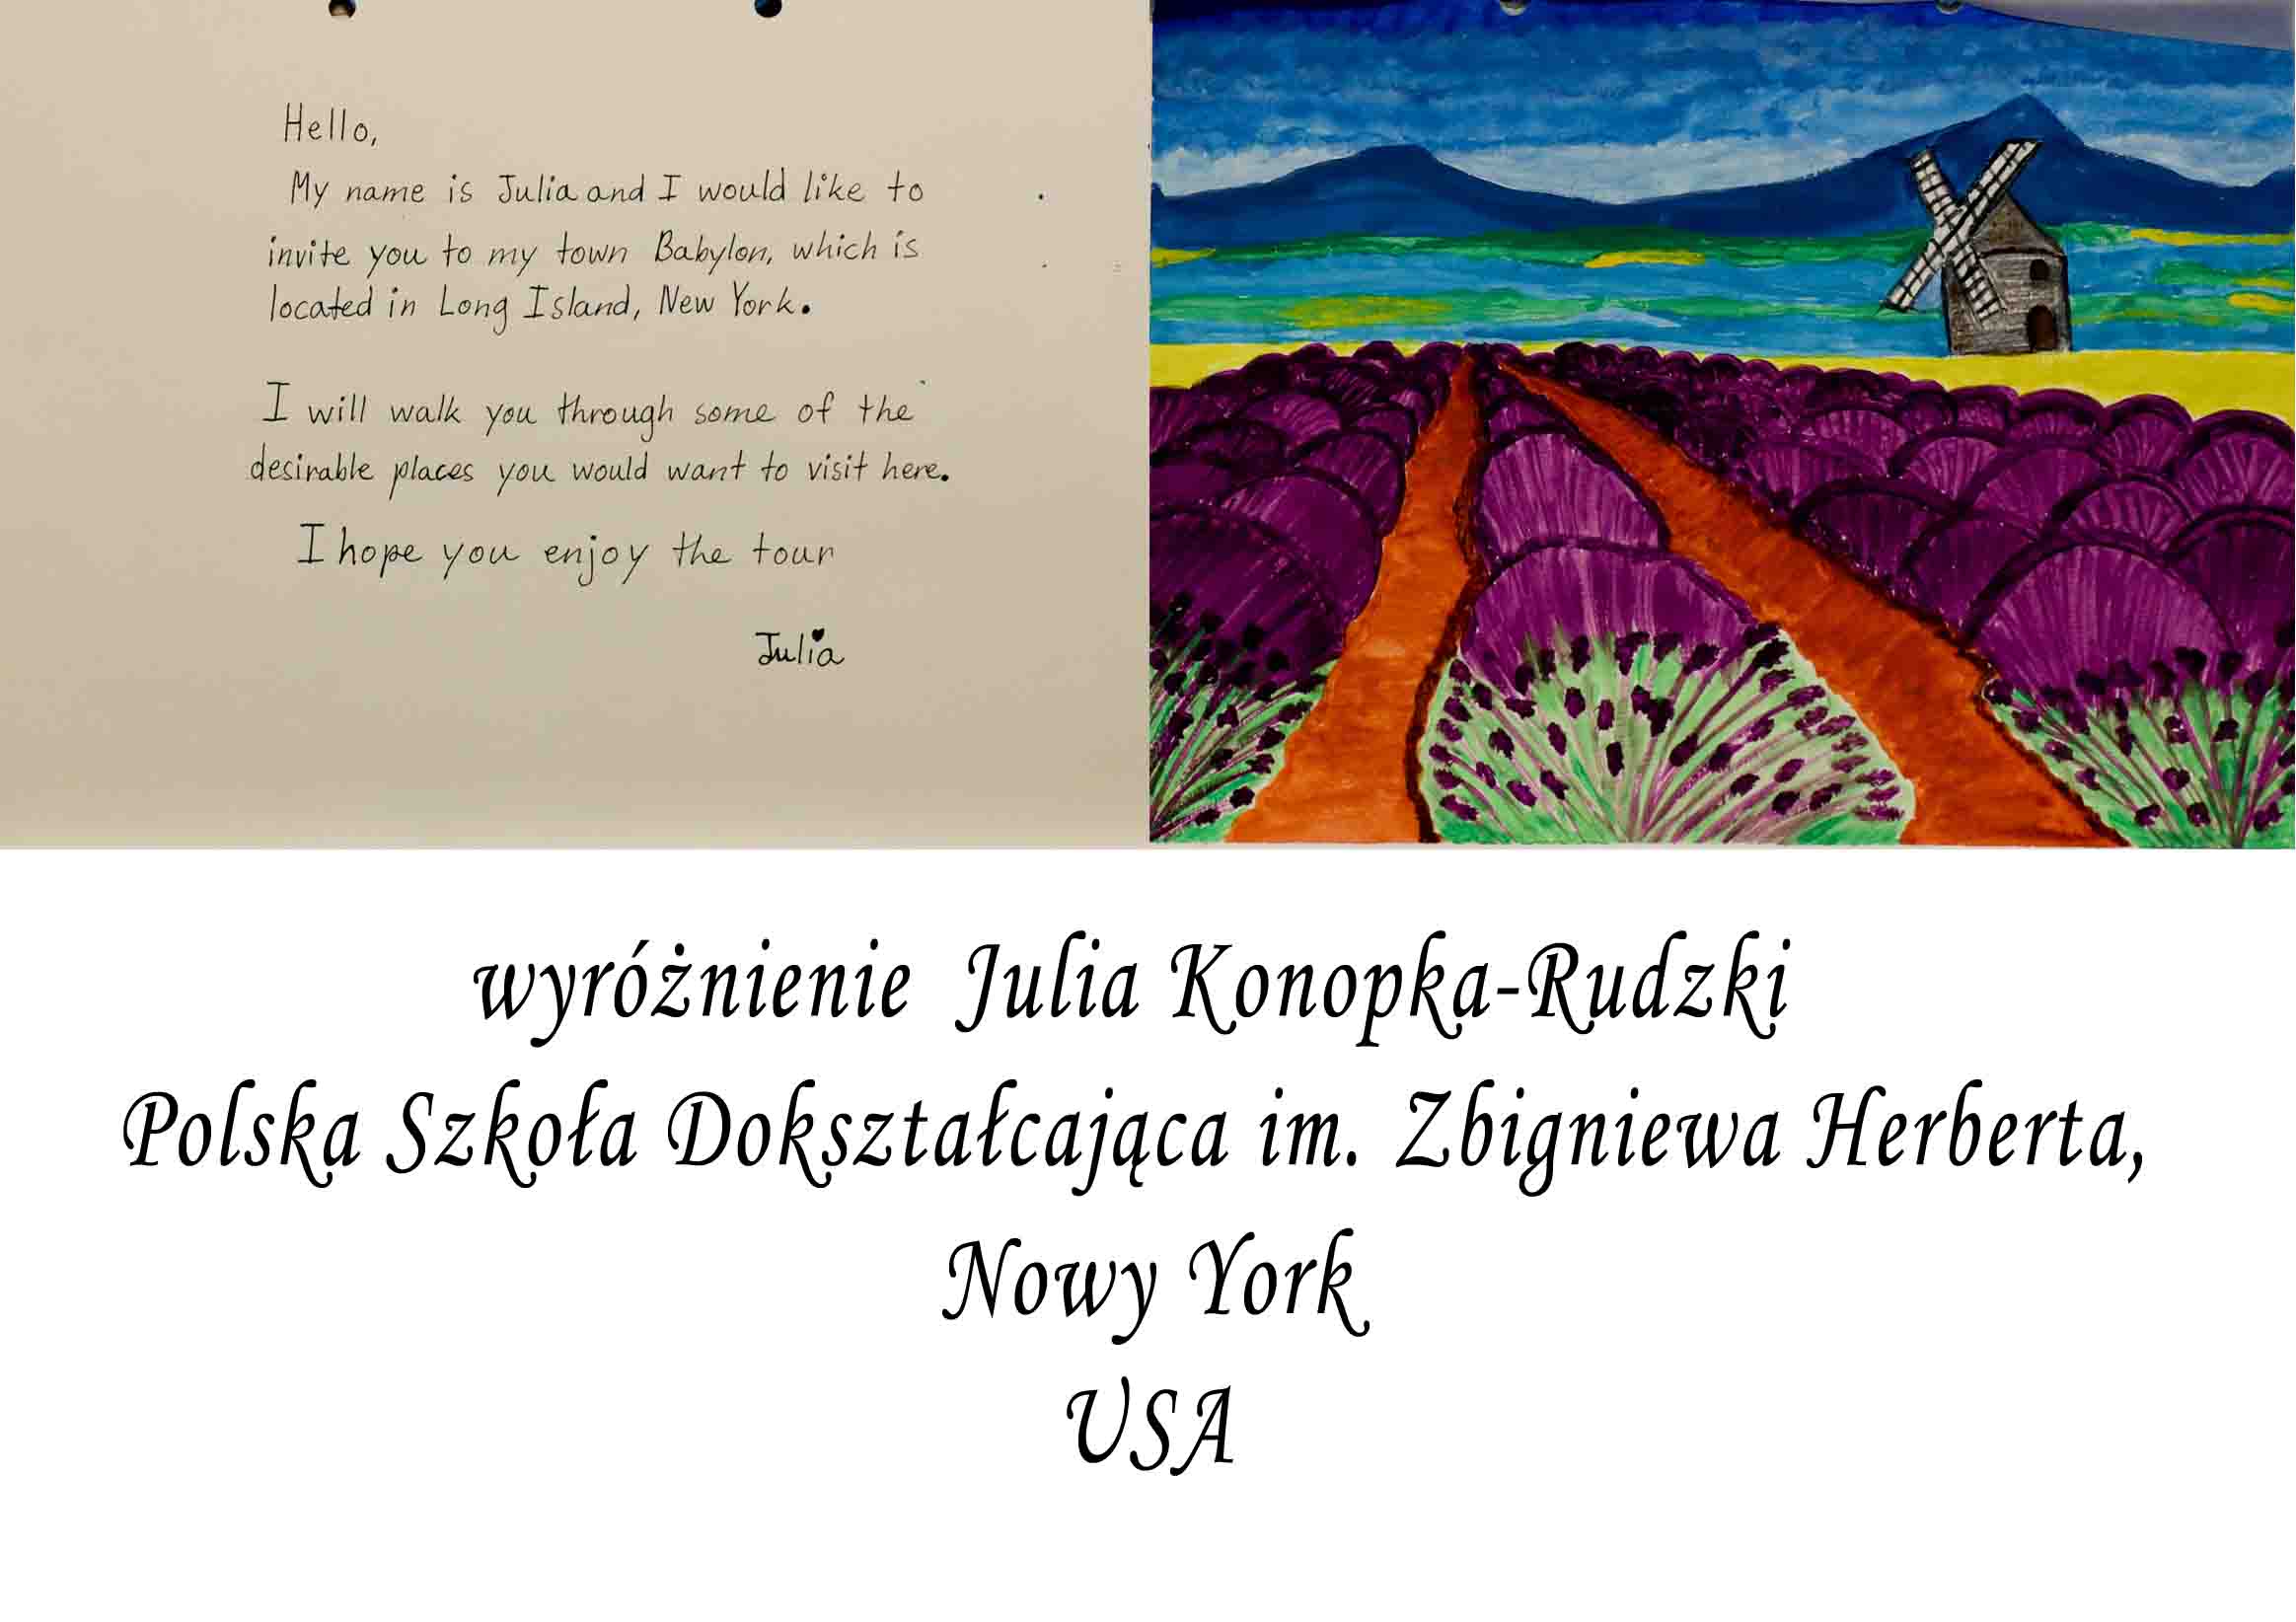 Hello,
My name is Julia and I would like to
invite you to my town Babylon, which is
located in Long Island, New York.
I will walk you through some of the
desirable places you would want to visit here.
I hope you enjoy the tour
Julia
wyróżnienie Julia Konopka-Rudzki
Polska Szkoła Dokształcająca im. Zbigniewa Herberta,
Nowy York
USA